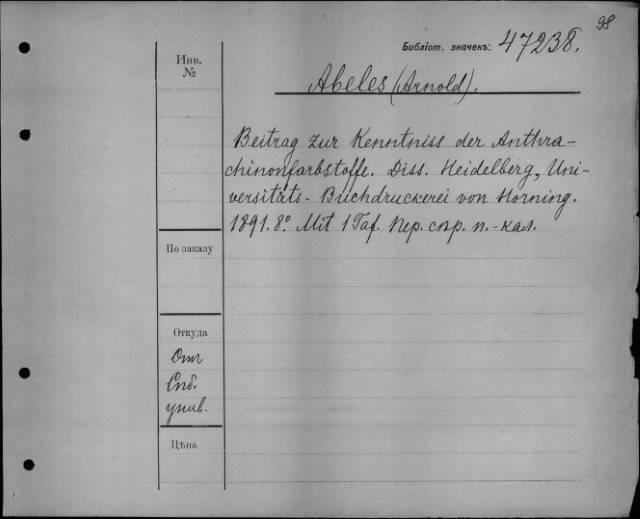 98
Библіот. значекъ: 47238.
Инв.
№
Abeles (Arnold).
Beitrag zur Kenntniss der Anthra-
chinonfarbstoffe. Diss. Heidelberg, Uni-
versitäts-Buchdruckerei von Horning.
1891. 8º. Mit 1 Taf. Пер. спр. п.-кал.
По заказу
Откуда
Отъ
Спб.
унив.
Цѣна